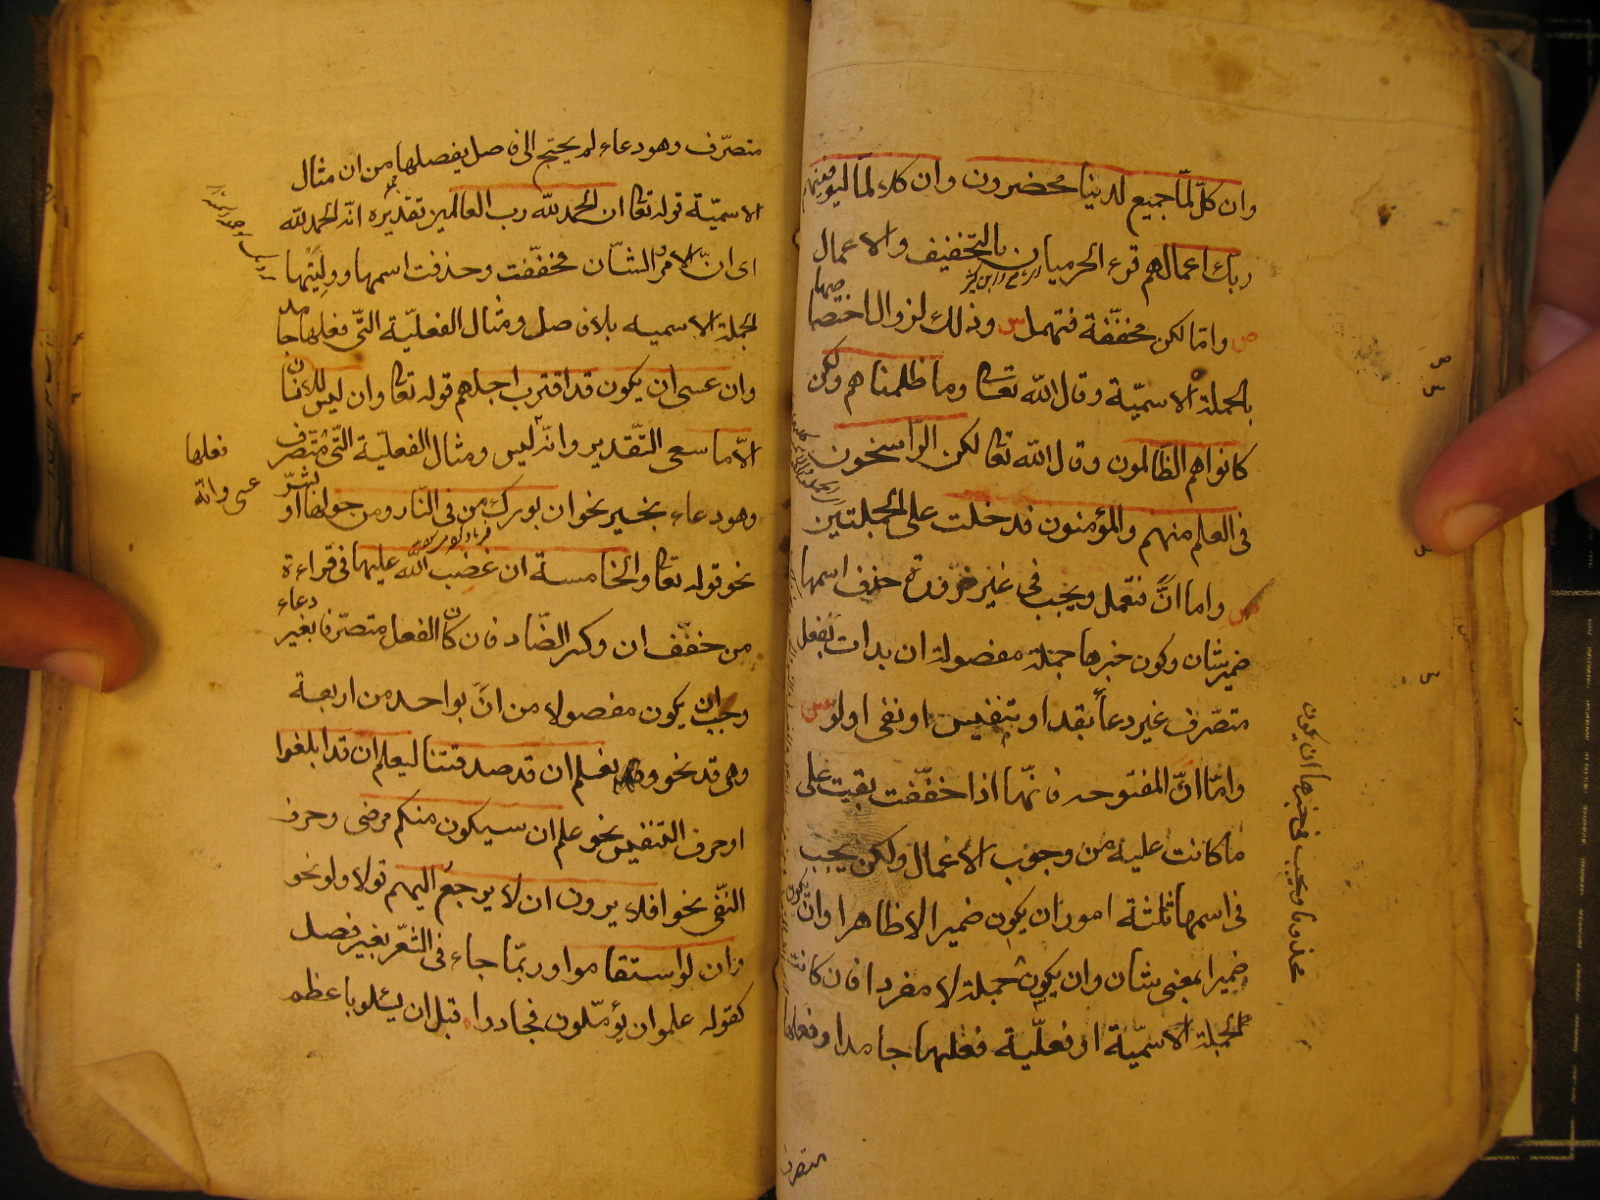 وان كلّ لمّا جميع لدينا محضرون وان كلا لمّا ليوفينهم
ربك اعمالهم قرء الحرميان بالتخفيف والاعمال
ص وامّا لكن مخفّفة فتهمل س وذلك لزوال اختصاصها
بالجملة الاسميّة وقال الله تعا وما ظلمناهم ولكن
كانوا هم الظالمون وقال الله تعا لكن الرّاسخون
فى العلم منهم والمؤمنون فدخلت على الجملتين
ص واما انّ فتعمل ويجب فى غير ضرورة حذف اسمها
ضمير شان وكون خبرها جملة مفصولة ان بدات بفعل
متصّرف غير دعاً بقد او تنفيس او نفى او لو س
وامّا انّ المفتوحه فانّها اذا خفّفت بقيت على
ما كانت عليه من وجوب الاعمال ولكن يجب
فى اسمها ثلثة امور ان يكون ضميرا لا ظاهرا وان يكون
ضميرا بمعنى شان وان يكون جملة لا مفردا فان كانت
الجملة الاسميّة او فعليّة فعلها جامد او فعلها
محذوفا ويجب فى خبرها ان يكون
متصرف
متصرّف وهو دعاء لم يحتج الى فاصل يفصلها من ان مثال
الاسميّة قوله تعا ان الحمد لله رب العالمين تقديره انّه الحمد لله
اى انّ الامر والشّان فخفّفت وحذفت اسمها ووليتها
الجملة الاسميه بلا فاصل ومثال الفعليّة التّى فعلها جامد
وان عسى ان يكون قد اقترب اجلهم قوله تعا وان ليس للانسان
الاّ ما سعى التّقدير وانّه ليس ومثال الفعليّة التّى متصرف
فعلها
عسى وانّه
وهو دعاء بخير نحو ان بورك من فى النّار ومن حولها او بشرّ
نحو قوله تعا والخامسة ان غضب الله عليها فى قراءة
من خفّف ان وكسر الضّاد فان كان الفعل متصرّفا بغير دعاء
وجب ان يكون مفصولا من انّ بواحد من اربعة
وهى قد نحو ونعلم ان قد صدقتنا ليعلم ان قد ابلغوا
او حرف التنفيس نحو علم ان سيكون منكم مرضى وحرف
النّفى نحو افلا يرون ان لا يرجع اليهم قولا ولو نحو
وان لو استقاموا وربّما جاء فى الشّعر بغير فصل
كقوله علموا ان يؤمّلون فجادوا قبل ان يسئلوا باعظم